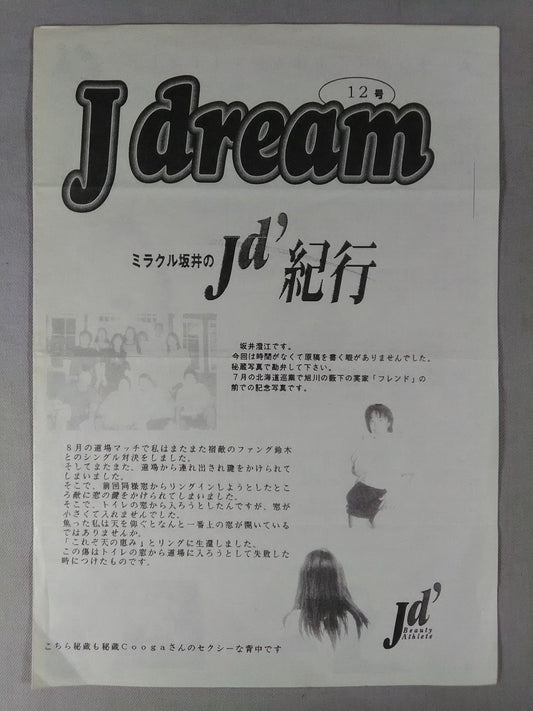 12号
J dream
ミラクル坂井の
Jd'紀行
坂井澄江です。
今回は時間がなくて原稿を書く暇がありませんでした。
秘蔵写真で勘弁して下さい。
7月の北海道巡業で旭川の藪下の実家「フレンド」の
前での記念写真です。
8月の道場マッチで私はまたまた宿敵のファング鈴木
とのシングル対決をしました。
そしてまたまた、道場から連れ出され鍵をかけられて
しまいました。
そこで、前回同様窓からリングインしようとしたとこ
ろ敵に窓の鍵をかけられてしまいました。
そこで、トイレの窓から入ろうとしたんですが、窓が
小さくて入れませんでした。
焦った私は天を仰ぐとなんと一番上の窓が開いている
ではありませんか。
「これぞ天の恵み」とリングに生還しました、
この傷はトイレの窓から道場に入ろうとして失敗した
時につけたものです。
Jd'
Beauty
Athlete
こちら秘蔵も秘蔵Coogaさんのセクシーな背中です